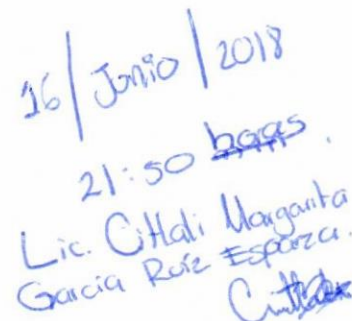 16/Junio/2018
21:50 horas.
Lic. Citlali Margarita
García Ruíz Esparza.